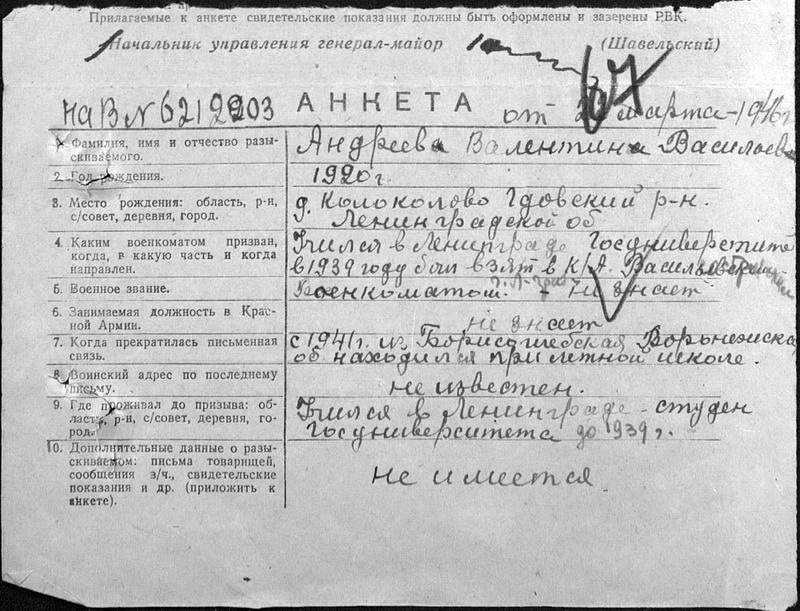 Прилагаемые к анкете свидетельские показания должны быть оформлены и заверены РВК.
Начальник управления генерал-майор (Шавельский)
67
на В № 62122903 АНКЕТА от марта-1946г
1. Фамилия, имя и отчество разы-
скиваемого.
Андреева Валентина Васильев
2. Год рождения.
1920г.
3. Место рождения: область, р-н,
с/совет, деревня, город.
д. Колоколово Гдовский р-н.
Ленинградской об
4. Каким военкоматом призван,
когда, в какую часть и когда
направлен.
Учился в Ленинграде Госуниверситете
в 1939 году был взят в К/А. Василеостровский
военкоматом.
5. Военное звание.
не знает
6. Занимаемая должность в Крас-
ной Армии.
не знает
7. Когда прекратилась письменная
связь.
с 1941г. из Борисоглебская Воронежской
об. находился при летной школе.
8. Воинский адрес по последнему
письму.
не известен.
9. Где проживал до призыва: об-
ласть, р-н, с/совет, деревня, го-
род.
Учился в Ленинграде-студен
Госуниверситета до 1939г.
10. Дополнительные данные о разы-
скиваемом: письма товарищей,
сообщения з/ч., свидетельские
показания и др. (приложить к
анкете).
не имеется